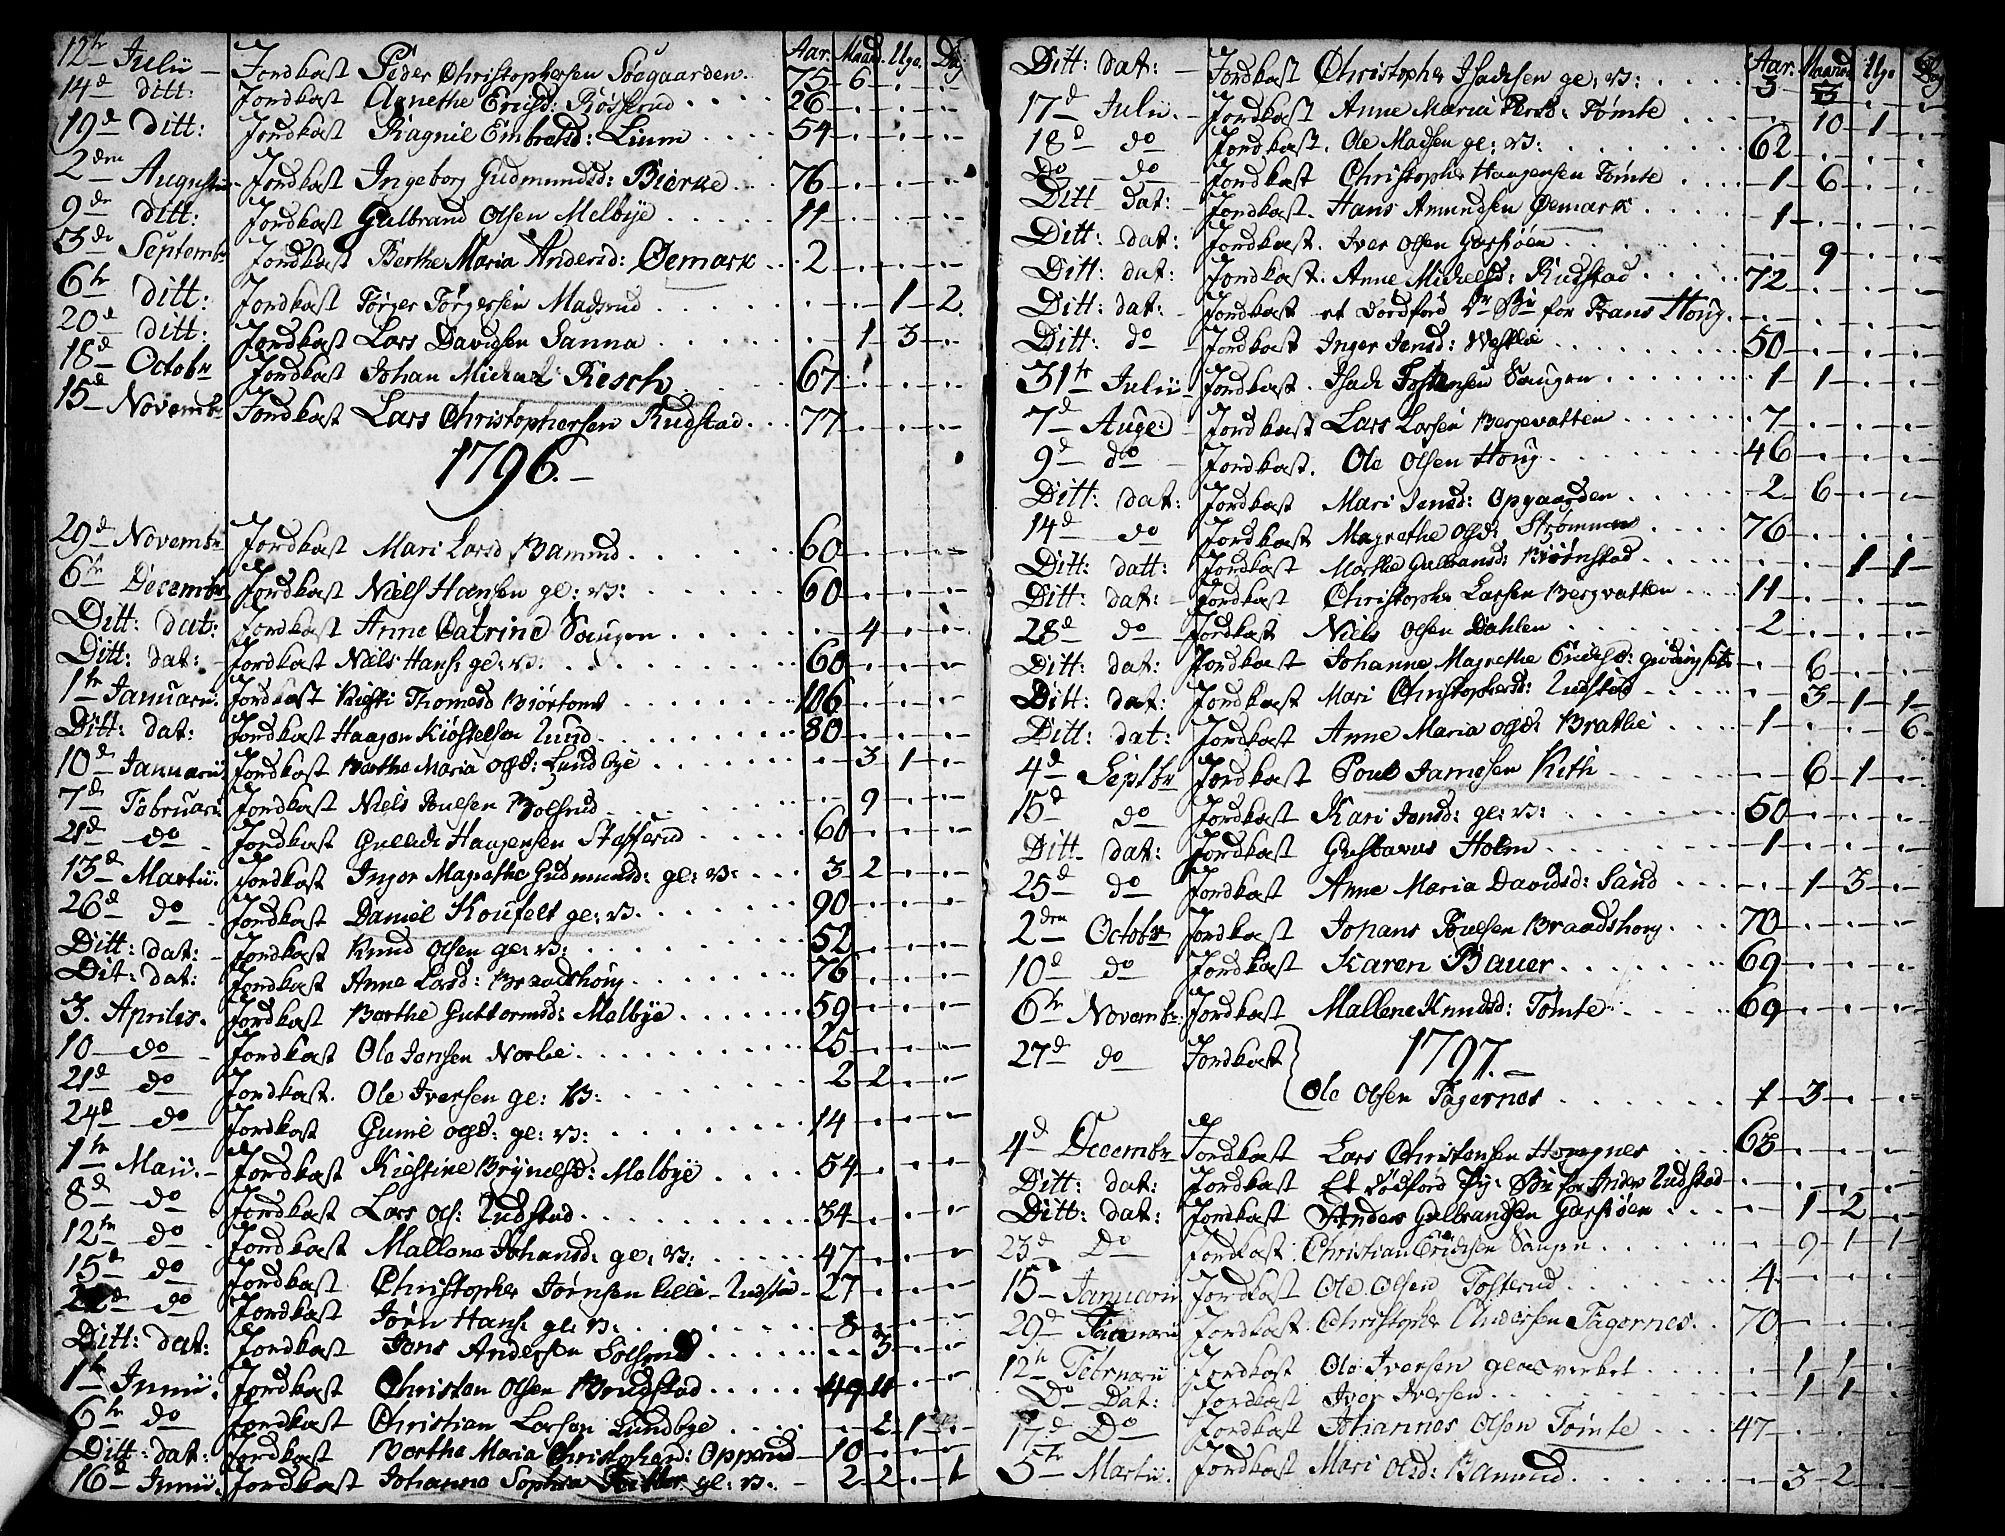 Aar. Maan. Uge. Dag
12te Julii Jordkast Peder Christophersen Søegaarden 75 6
14d ditt: Jordkast Agnethe Ericsd: Røskrud 26
19d ditt: Jordkast Ragnil Embretsd: Lium 54
2den Augustii Jordkast Ingeborg Gudmundsd: Bierke 76
9de ditt: Jordkast Gulbrand Olsen Melbye 11
3de Septembr Jordkast Berthe Maria Andersd: Øemark 2
6te ditt: Jordkast Tørger Tørgersen Madsrud 1 2
20d ditt: Jordkast Lars Davidsen Sanna 1 3
18d Octobr Jordkast Johan Michael Resch 67
15d Novembr Jordkast Lars Christophersen Rudstad 77
1796.
29d Novembr Jordkast Mari Larsd Bamrud 60
6te Decembr Jordkast Niels Hansen ge: v: 60
Ditt: dat: Jordkast Anne Catrine Saugen 4
Ditt: dat: Jordkast Niels Hans: ge: v: 60
1te Januarii. Jordkast Kiersti Thomasd 106
Ditt: dat: Jordkast Haagen Kiøstelsen Lund 80
10d Januarii Jordkast Berthe Maria Olsd: Lundbye 3 1
7d Februari Jordkast Niels Poulsen Bolsrud 9
21d do Jordkast Gullich Haagensen Stafferud 60
13d Martii. Jordkast Inger Magrethe Gudmunds: ge: v: 3 2
26d do Jordkast Daniel Koufelt ge: v. 90
Ditt: dat: Jordkast Knud Olsen ge: v: 52
Dit: dat: Jordkast Anne Larsd: Braadshoug 76
3. Aprilis. Jordkast Berthe Guttormsd: Malbye 59
10 do Jordkast Ole Jensen Norbe 25
21d do Jordkast. Ole Iversen ge: v: 2 2
24d do Jordkast Gunil Olsd: ge: v: 14
1te Maii. Jordkast Kiestine Brynelsd: Malbye 54
8d do Jordkast Lars Ols: Rudstad 34
12te do Jordkast Mallene Johansd: ge: v: 47
15d do Jordkast Christopher Jørnsen Lille-Rudstad 27
22d do Jordkast Jørn Hans: ge: v: 8
Ditt: dat: Jordkast Jens Andersen Solsrud 3
1te Junii. Jordkast Christen Olsen Brudstad 49 11
6te do Jordkast Christian Larsen Lundbye 2 1
Ditt: dat: Jordkast Berthe Maria Christophersd: Opperud 10
16d Junii Jordkast Johanne Sophia ge: v. 2 2 1
Aar. Maaned Uge Dag
Ditt: dat: Jordkast Christopher Isachsen ge: v: 3
17d Julii. Jordkast Anne Maria Persd: Tømte 10 1
18d do Jordkast. Ole Madsen ge: v: 62
Do do Jordkast Christopher Haagensen Tømte 1 6
Ditt dat: Jordkast. Hans Amundsen Øemark 1
Ditt: dat: Jordkast. Iver Olsen Garsiøen 9
Ditt: dat: Jordkast. Anne Michelsd: Rudstad 72
Ditt: dat: Jordkast et dødfød for Frans Houg.
Ditt: do Jordkast Inger Jensd: Westlie 50
31te Julii Jordkast. Isach Tostensen Saugen 1 1
7d Auge: Jordkast Lars Larsen Bergevatten 7
9d do Jordkast. Ole Olsen Houg 46
Ditt: dat: Jordkast Mari Jensd: Opgaarden 2 6
14d do Jordkast Magrethe Olsd: Strømmen 76
Ditt: datt: Jordkast Marthe Gulbransd: Biørnstad 1 1
Ditt: dat: Jordkast Christopher Larsen Bergvatten 11
28d do Jordkast Niels Olsen Dahlen 2
Ditt: dat: Jordkast Johanne Magrethe Erichsd: 6
Ditt: dat: Jordkast Mari Christophersd: Rudstad 3 1 1
Ditt: dat: Jordkast Anne Maria Olsd: Brathe 1 6
4d Septbr Jordkast Poul Jamesen Kith 6 1
15d do Jordkast Kari Jonsd: ge: v: 50
Ditt dat: Jordkast Gustavus Holm 1
25d do Jordkast Anne Maria Davidsd: Sand 1 3
2den Octobr Jordkast Johans Poulsen Braadshoug 70
10d do Jordkast Karen Bauer 69
6te Novembr. Jordkast Mallene Knudsd: Tømte 69
27d do Jordkast 1797.
Ole Olsen Tagernes 1 3
4d Decembr Jordkast Lars Christensen Hougnes 63
Ditt: dat: Jordkast Et dødfød for Anders Rudstad
Ditt: dat: Jordkast Anders Gulbrandsen Garsiøen 1 2
23d Do Jordkast. Christian Erichsen Saugen 9 1 1
15 Januarii Jordkast Ole Olsen Tosterud 4
29d Januarii Jordkast. Christopher Andersen Tagernes. 70
12te Februarii Jordkast Ole Iversen glasverket 1 1
Do Dat: Jordkast Iver Iversen 1 1
17d Do Jordkast Johannes Olsen Tømte 47
5te Martii. Jordkast Mari Olsd: Bamrud 3 2